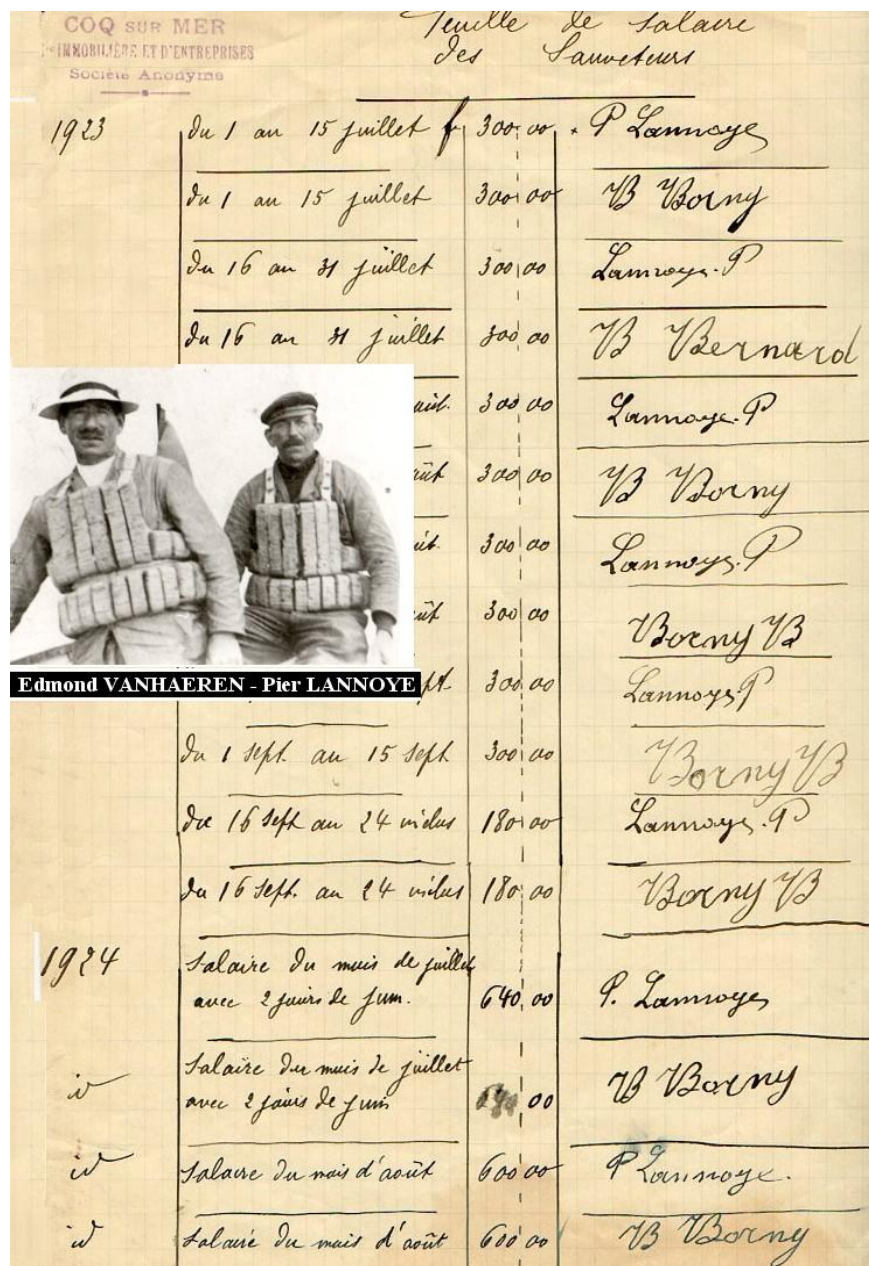 COQ SUR MER
IMMOBILIÈRE ET D'ENTREPRISES
Société Anonyme
Feuille de Salaire
des Sauveteurs
1923 du 1 au 15 juillet f 300,00 P Lannoye
du 1 au 15 juillet 300,00 B Borny
du 16 au 31 juillet 300,00 Lannoye. P
du 16 au 31 juillet 300,00 B Bernard
aût. 300,00 Lannoye. P
aût 300,00 B Borny
aût. 300,00 Lannoye. P
aût 300,00 Borny B
pt. 300,00 Lannoye P
du 1 sept. au 15 sept 300,00 Borny B
du 16 sept au 24 inclus 180,00 Lannoye. P
du 16 sept. au 24 inclus 180,00 Borny B
1924 Salaire du mois de juillet
avec 2 jours de juin. 640,00 P. Lannoye
id Salaire du mois de juillet
avec 2 jours de juin 640,00 B Borny
id Salaire du mois d'août 600,00 P Lannoye.
id Salaire du mois d'août 600,00 B Borny
Edmond VANHAEREN - Pier LANNOYE